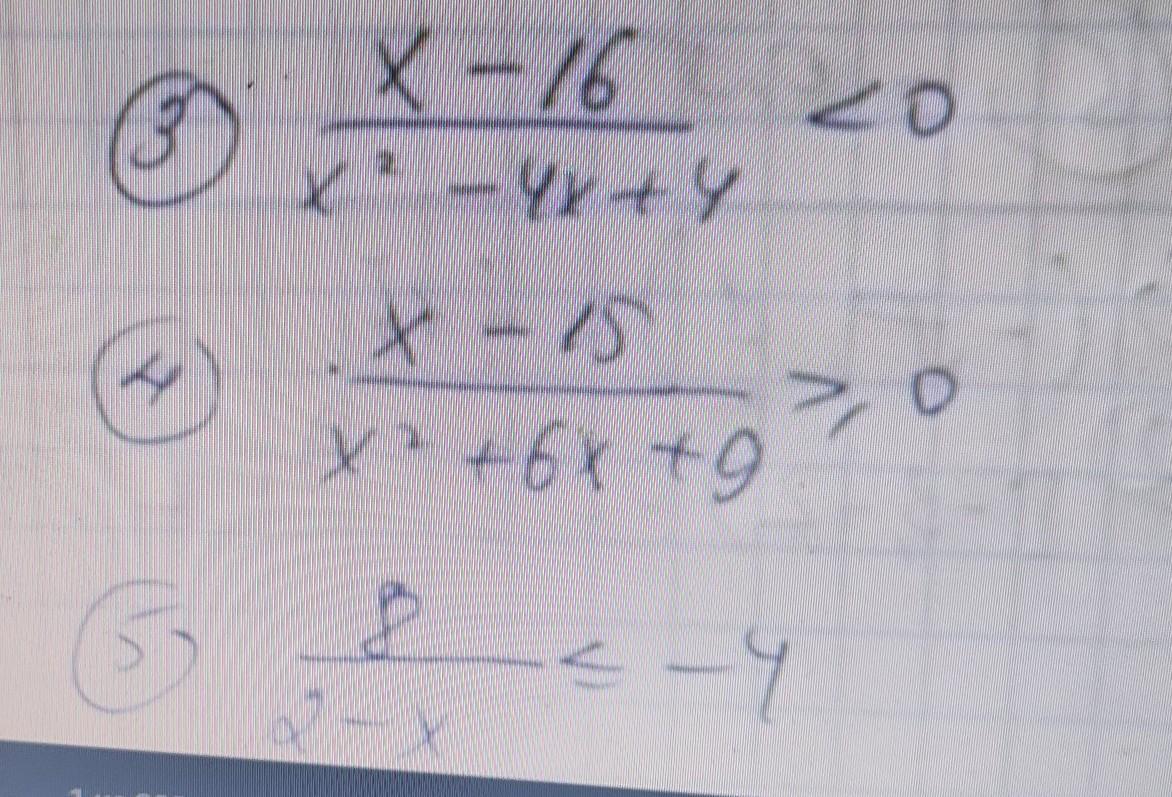 ③ x - 16 / x² - 4x + 4 < 0
④ x - 15 / x² + 6x + 9 ⩾ 0
⑤ 8 / 2 - x ≤ -4